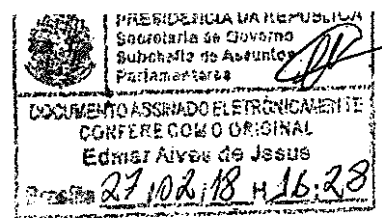 PRESIDENCIA DA REPUBLICA
Secretaria de Governo
Subchefia de Assuntos
Parlamentares
DOCUMENTO ASSINADO ELETRÔNICAMENTE
CONFERE COM O ORIGINAL
Edmar Alves de Jesus
Brasília 27/02/18 H 16:28